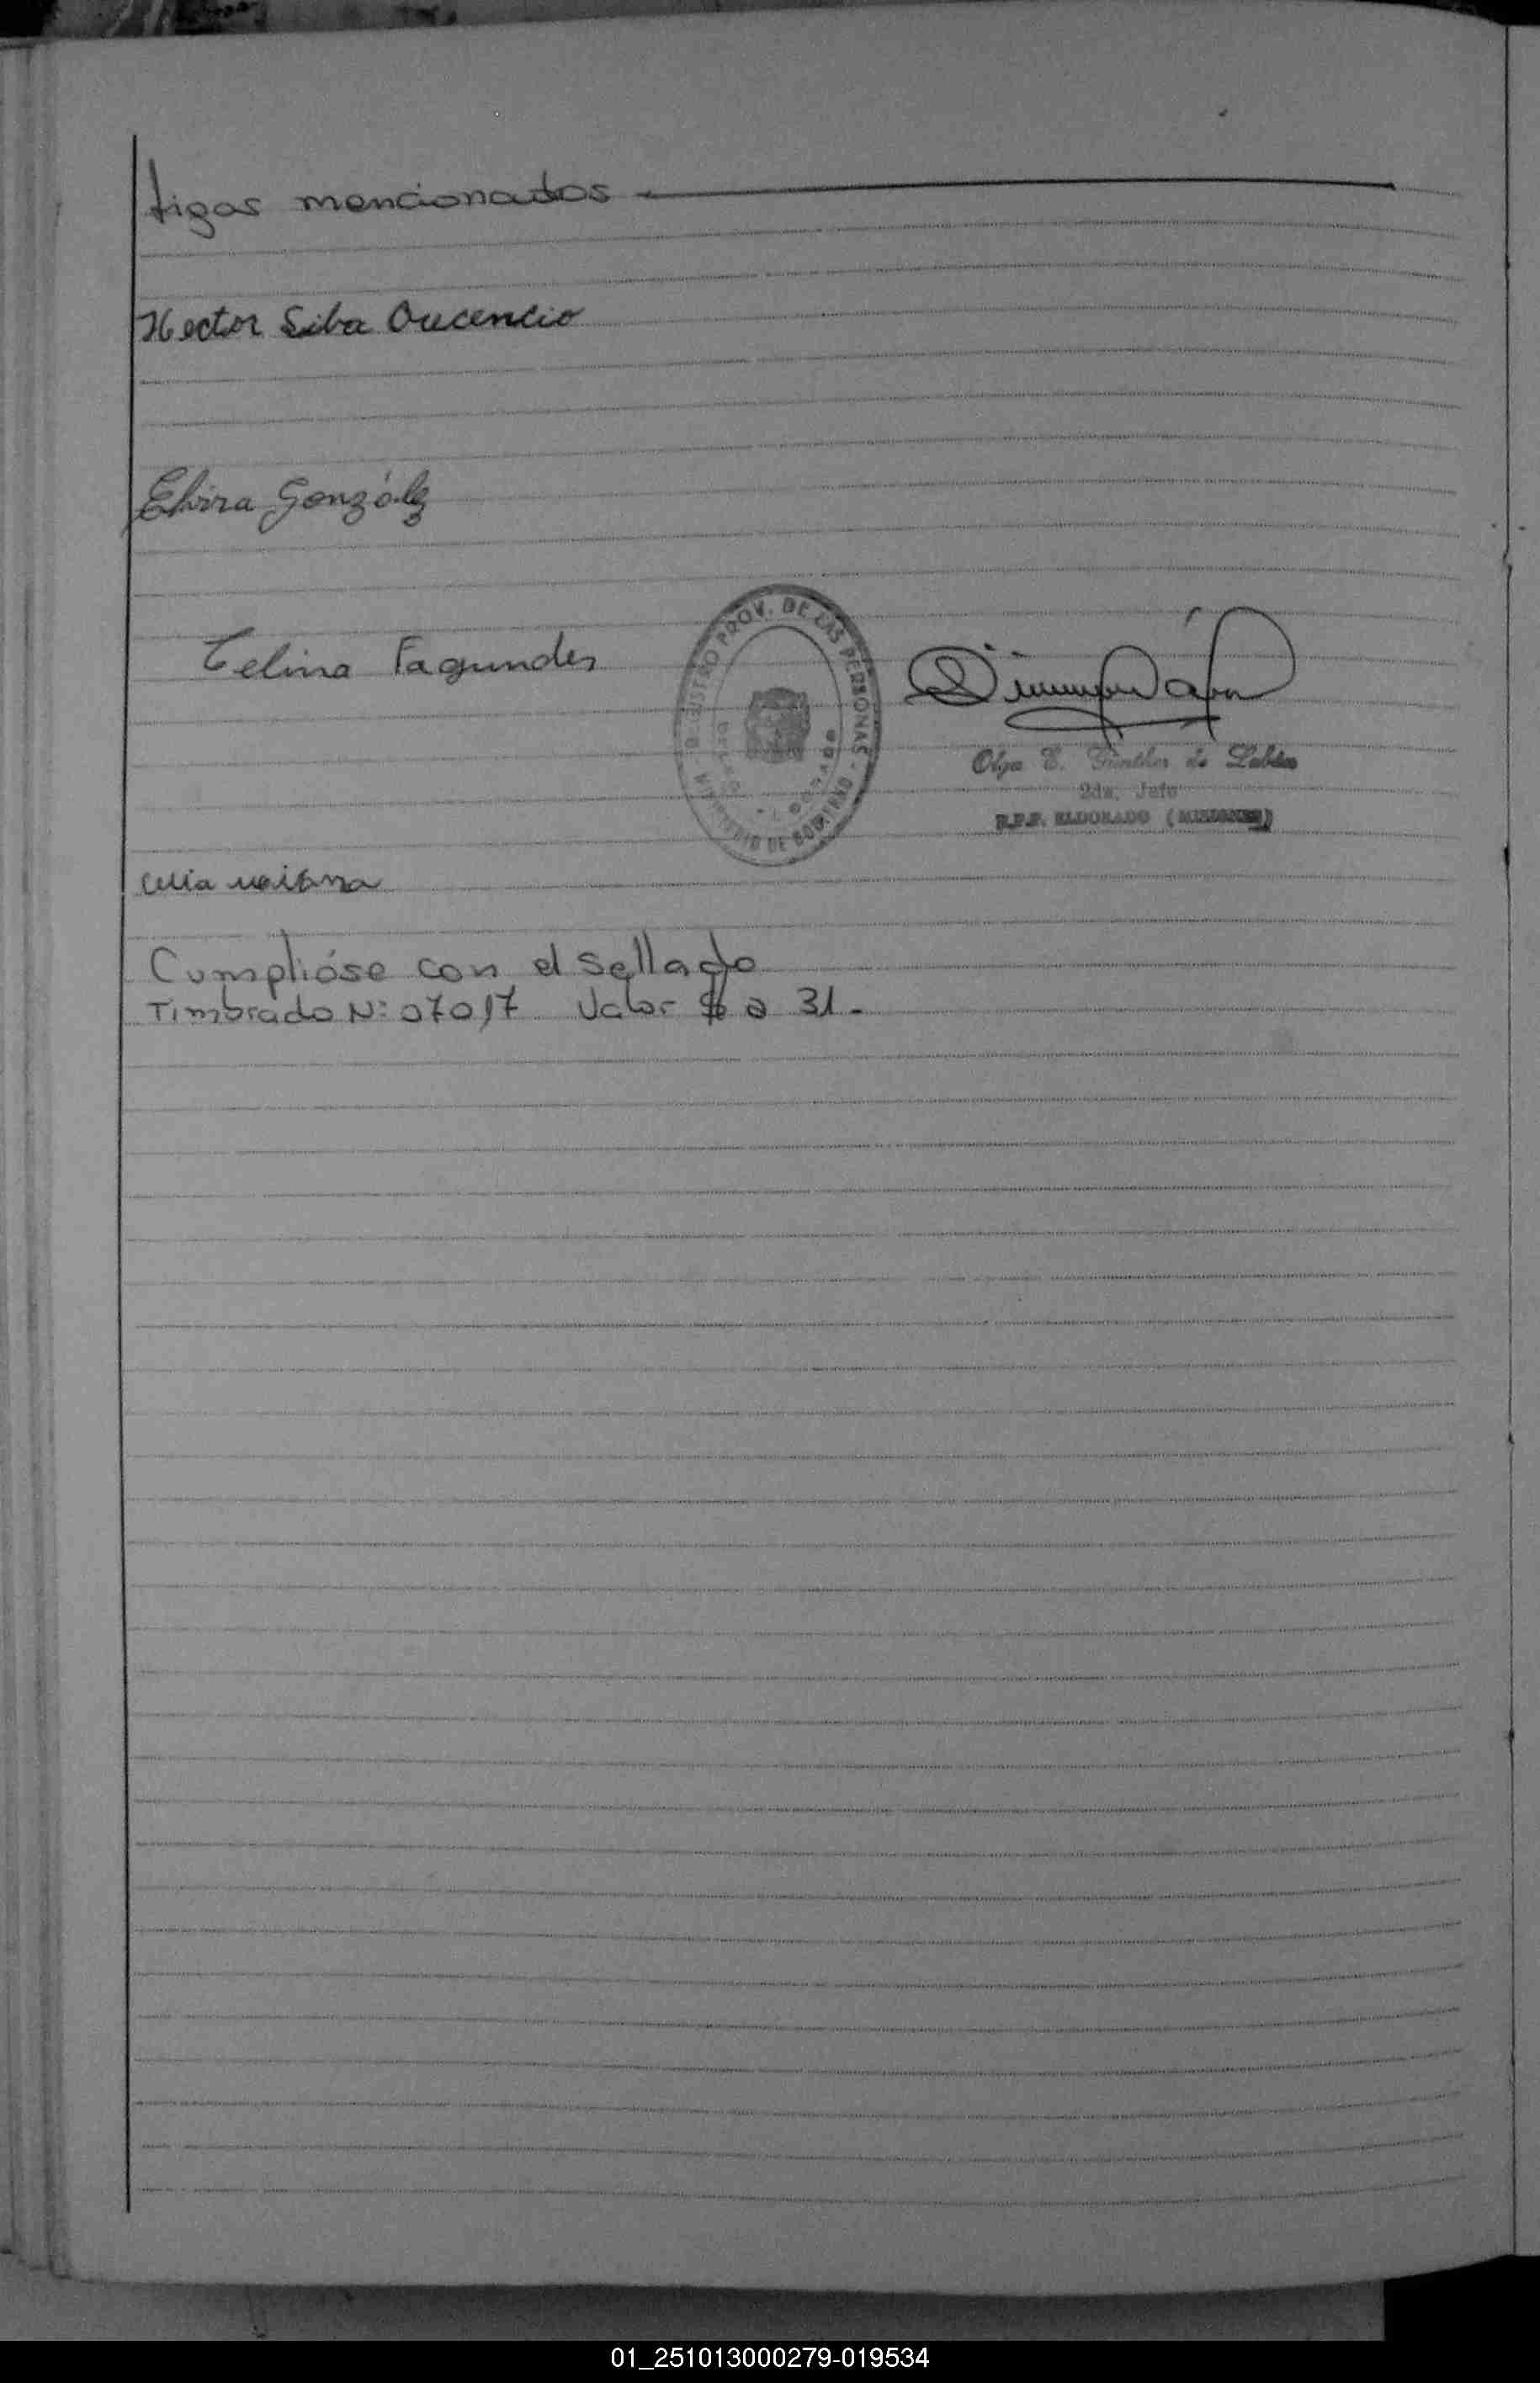 tigos mencionados
Hector Silva Oucencio
Elvira González
Celina Fagundes
REGISTRO PROV. DE LAS PERSONAS
MINISTERIO DE GOBIERNO
Olga E. Günther de
2da. Jefe
ELDORADO (MISIONES)
Celia
Cumplióse con el sellado
Timbrado Nº 07017 Valor $ a 31.-
01_251013000279-019534